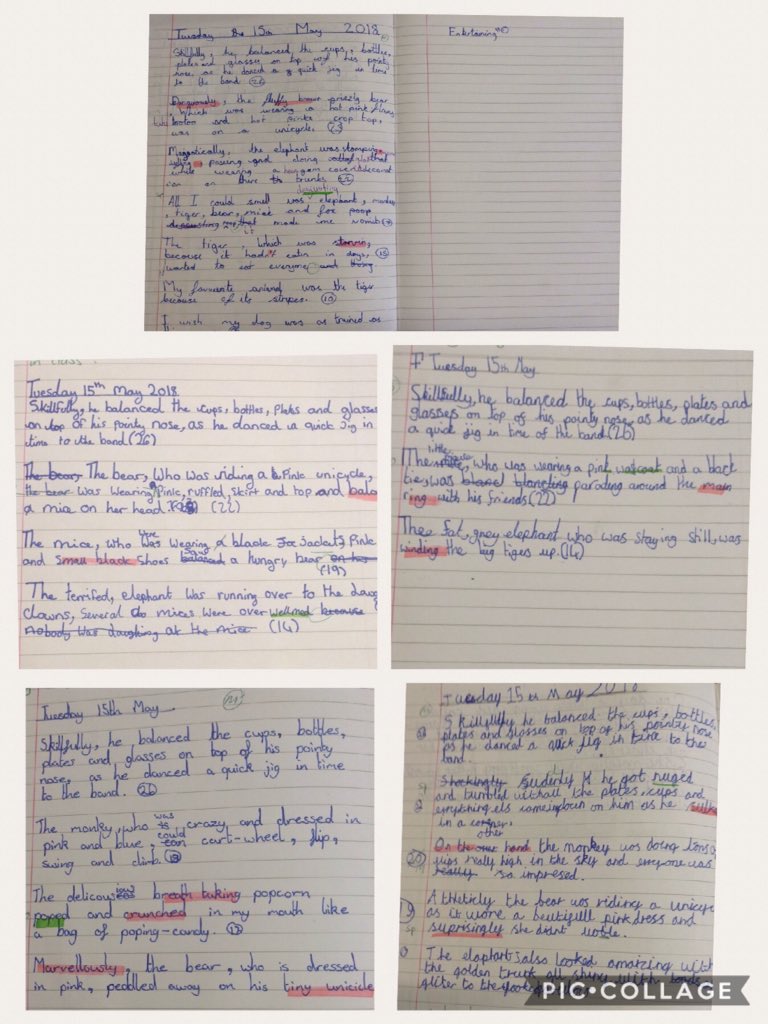 Tuesday the 15th May 2018
Entertaining
Skillfully, he balanced the cups, bottles,
plates and glasses on top of his pointy
nose, as he danced a quick jig in time
to the band (26)
the fluffy brown grizzly bear
, which was wearing a hot pink
and hot pink crop top,
was on a unicycle. (23)
Magestically, the elephant was stomping
posing and doing
while wearing a
on there trunks (22)
desgusting
All I could smell was elephant,
, tiger, bear, mice and fox poop
that made me vomit
it
The tiger, which was starvin,
because it hadn't eatin in days, (15)
wanted to eat everyone and
My favourite animal was the tiger
because of its stripes. (10)
I wish my dog was as trained as
in class.
Tuesday 15th May 2018
Skillfully, he balanced the cups, bottles, plates and glasses
on top of his pointy nose, as he danced a quick jig in
time to the band (26)
The bear, The bear, Who was riding a Pink unicycle,
the bear was wearing Pink, ruffled, skirt and top and
a mice on her head (22)
were
The mice, who was wearing a black Jackets, Pink
and small black shoes balanced a hungry bear on his
(19)
The terrifed, elephant was running over to the
clowns, Several mices were over wellmed because
nobody was laughing at the mice (14)
Tuesday 15th May
Skillfully, he balanced the cups, bottles, plates and
glasses on top of his pointy nose, as he danced
a quick jig in time of the band (26)
little
The, who was wearing a pink wascoat and a back
tie, was parading around the main
ring with his friends (22)
Thee fat, grey elephant who was staying still, was
winding the big tigers up. (14)
Tuesday 15th May
Skillfully, he balanced the cups, bottles,
plates and glasses on top of his pointy
nose, as he danced a quick jig in time
to the band. (26)
was
The monkey, who is crazy and dressed in
could
pink and blue, can cart-wheel, flip,
swing and climb.
The delicous breath taking popcorn
poped and crunched in my mouth like
a bag of poping-candy.
Marvellously, the bear, who is dressed
in pink, peddled away on his tiny unicicle
Tuesday 15th May 2018
Skillfully he balanced the cups, bottles,
plates and glasses on top of his pointy nose
as he danced a quick jig in time to the
band.
Shockingly Sudenly he got nuged
and tumbled withall the plates, cups and
everything els on him as he
in a corner.
other
On the hand the monkey was doing
flips really high in the sky and everyone was
really so impresed.
Athleticly the bear was riding a unicycle
as it wore a beutifull pink dress and
suprisingly she didnt woble.
The elaphant also looked amaizing with
the golden trunk all shiney with
gliter to the
PIC•COLLAGE